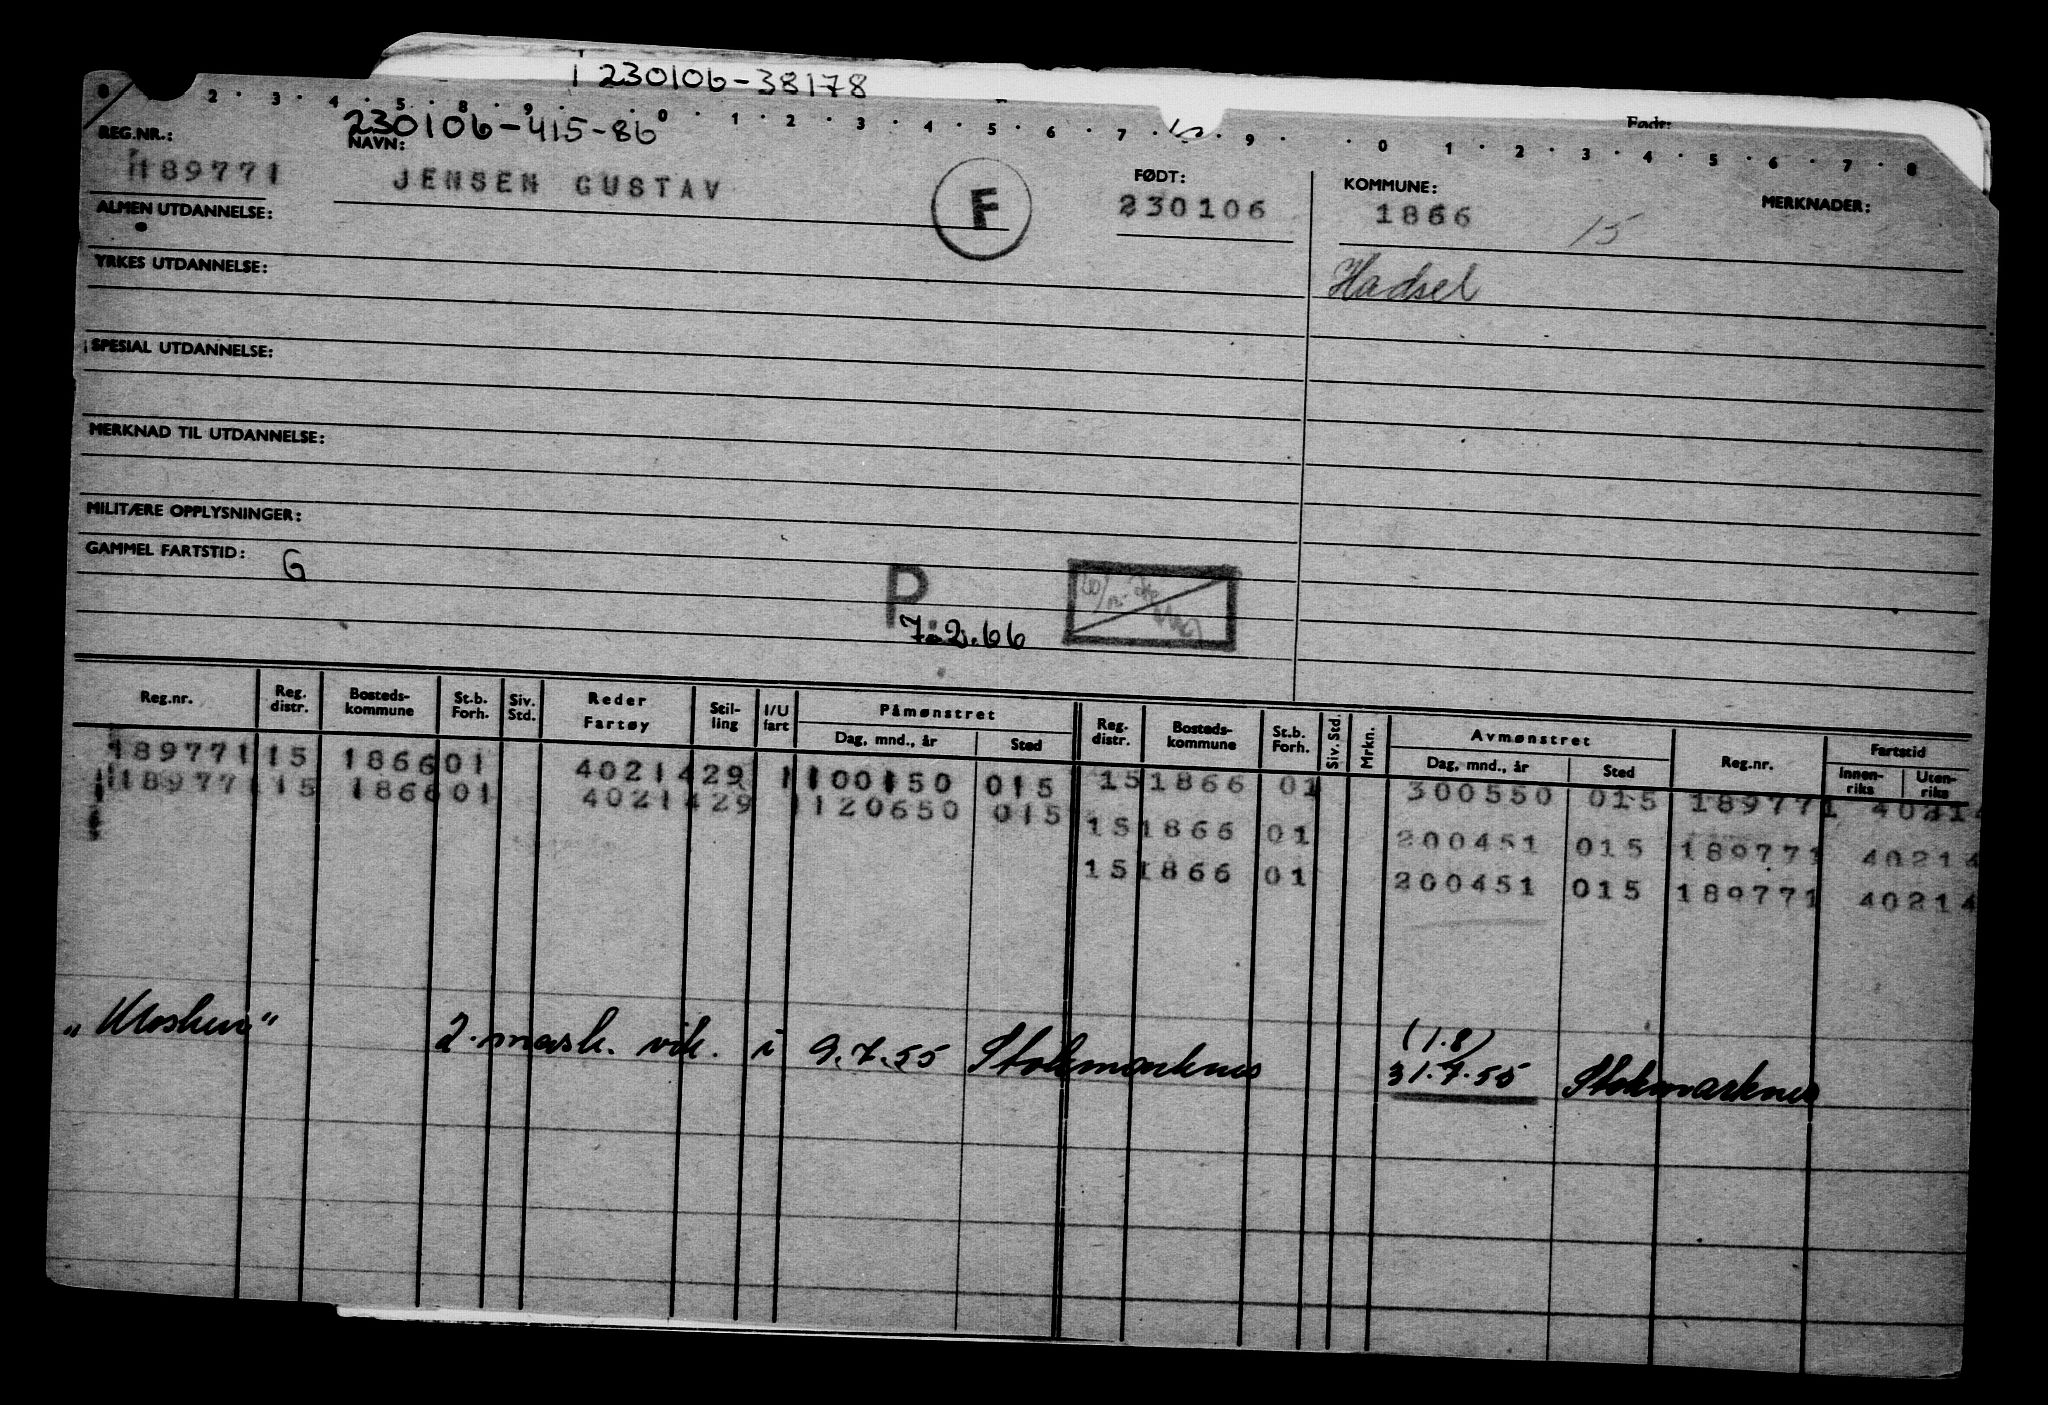 i 230106-38178
0 2 · 3 · 4 · 5 · 8 · 9 · 0 · 1 · 2 · 3 · 4 · 5 · 6 · 7 · 9 · · 0 · 1 · 2 · 3 · 4 · 5 · 6 · 7 · 8
Født:
230106-415-86
REG.NR.: NAVN: FØDT: KOMMUNE: MERKNADER:
189771 JENSEN GUSTAV F 230106 1866 15
ALMEN UTDANNELSE:
Hadsel
YRKES UTDANNELSE:
SPESIAL UTDANNELSE:
MERKNAD TIL UTDANNELSE:
MILITÆRE OPPLYSNINGER:
GAMMEL FARTSTID: G
P.
7.2.66
Reg.nr. Reg. distr. Bosteds-kommune St.b. Forh. Siv. Std. Reder Fartøy Stil-ling I/U fart Påmønstret Dag, mnd., år Sted Reg. distr. Bosteds-kommune St.b. Forh. Siv. Std. Mrkn. Avmønstret Dag, mnd., år Sted Reg.nr. Fartstid Innen-riks Uten-riks
189771 15 1866 01 40214 29 1 100150 015 15 1866 01 300550 015 189771 40214
189771 15 1866 01 40214 29 1 120650 015 15 1866 01 200451 015 189771 40214
15 1866 01 200451 015 189771 40214
(1.8)
2. mask. vik. i 9.7.55 Stokmarknes 31.7.55 Stokmarknes